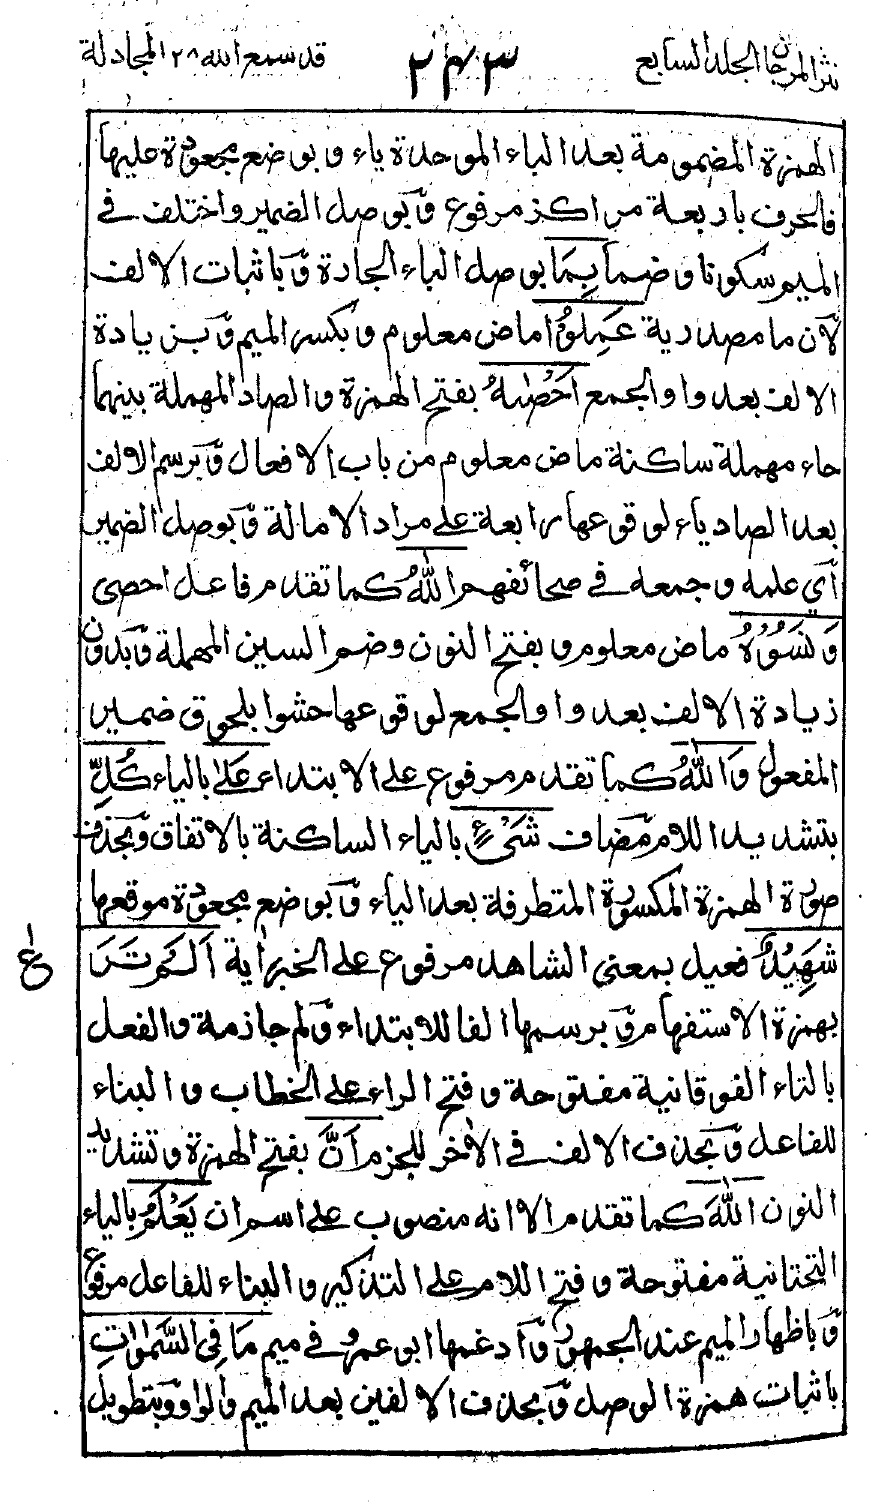 نثر المرجان الجلد السابع ٢٤٣ قد سمع الله ٢٨ المجادلة
الهمزة المضمومة بعد الباء الموحدة ياء و بوضع مجعودة عليها
فالحرف باربعة مراكز مرفوع و بوصل الضمير و اختلف في
الميم سكونا و ضما بِمَا بوصل الباء الجارة و باثبات الالف
لأن ما مصدرية عَمِلُوْا ماض معلوم و بكسر الميم و بزيادة
الالف بعد واو الجمع اَحْصٰىهُ بفتح الهمزة و الصاد المهملة بينهما
حاء مهملة ساكنة ماض معلوم من باب الافعال و برسم الالف
بعد الصاد ياء لوقوعها رابعة على مراد الامالة و بوصل الضمير
أي علمه و جمعه في صحائفهم اللّٰهُ كما تقدم فاعل احصى
وَنَسُوْهُ ماض معلوم و بفتح النون و ضم السين المهملة و بدون
زيادة الالف بعد واو الجمع لوقوعها حشوا بلحوق ضمير
المفعول وَاللّٰهُ كما تقدم مرفوع على الابتداء عَلٰى بالياء كُلِّ
بتشديد اللام مضاف شَىْءٍ بالياء الساكنة بالاتفاق و بحذف
صورة الهمزة المكسورة المتطرفة بعد الياء و بوضع مجعودة موقعها
شَهِيْدٌ فعيل بمعنى الشاهد مرفوع على الخبر اٰية اَلَمْ تَرَ
بهمزة الاستفهام و برسمها الفا للابتداء و لم جازمة و الفعل
بالتاء الفوقانية مفتوحة و فتح الراء على الخطاب و البناء
للفاعل و بحذف الالف في الاٰخر للجزم اَنَّ بفتح الهمزة و تشديد
النون اللّٰهَ كما تقدم الا انه منصوب على اسم ان يَعْلَمُ بالياء
التحتانية مفتوحة و فتح اللام على التذكير و البناء للفاعل مرفوع
و باظهار الميم عند الجمهور و أدغمها ابو عمرو في ميم مَا فِى السَّمٰوٰتِ
باثبات همزة الوصل و بحذف الالفين بعد الميم و الواو و بتطويل
ع